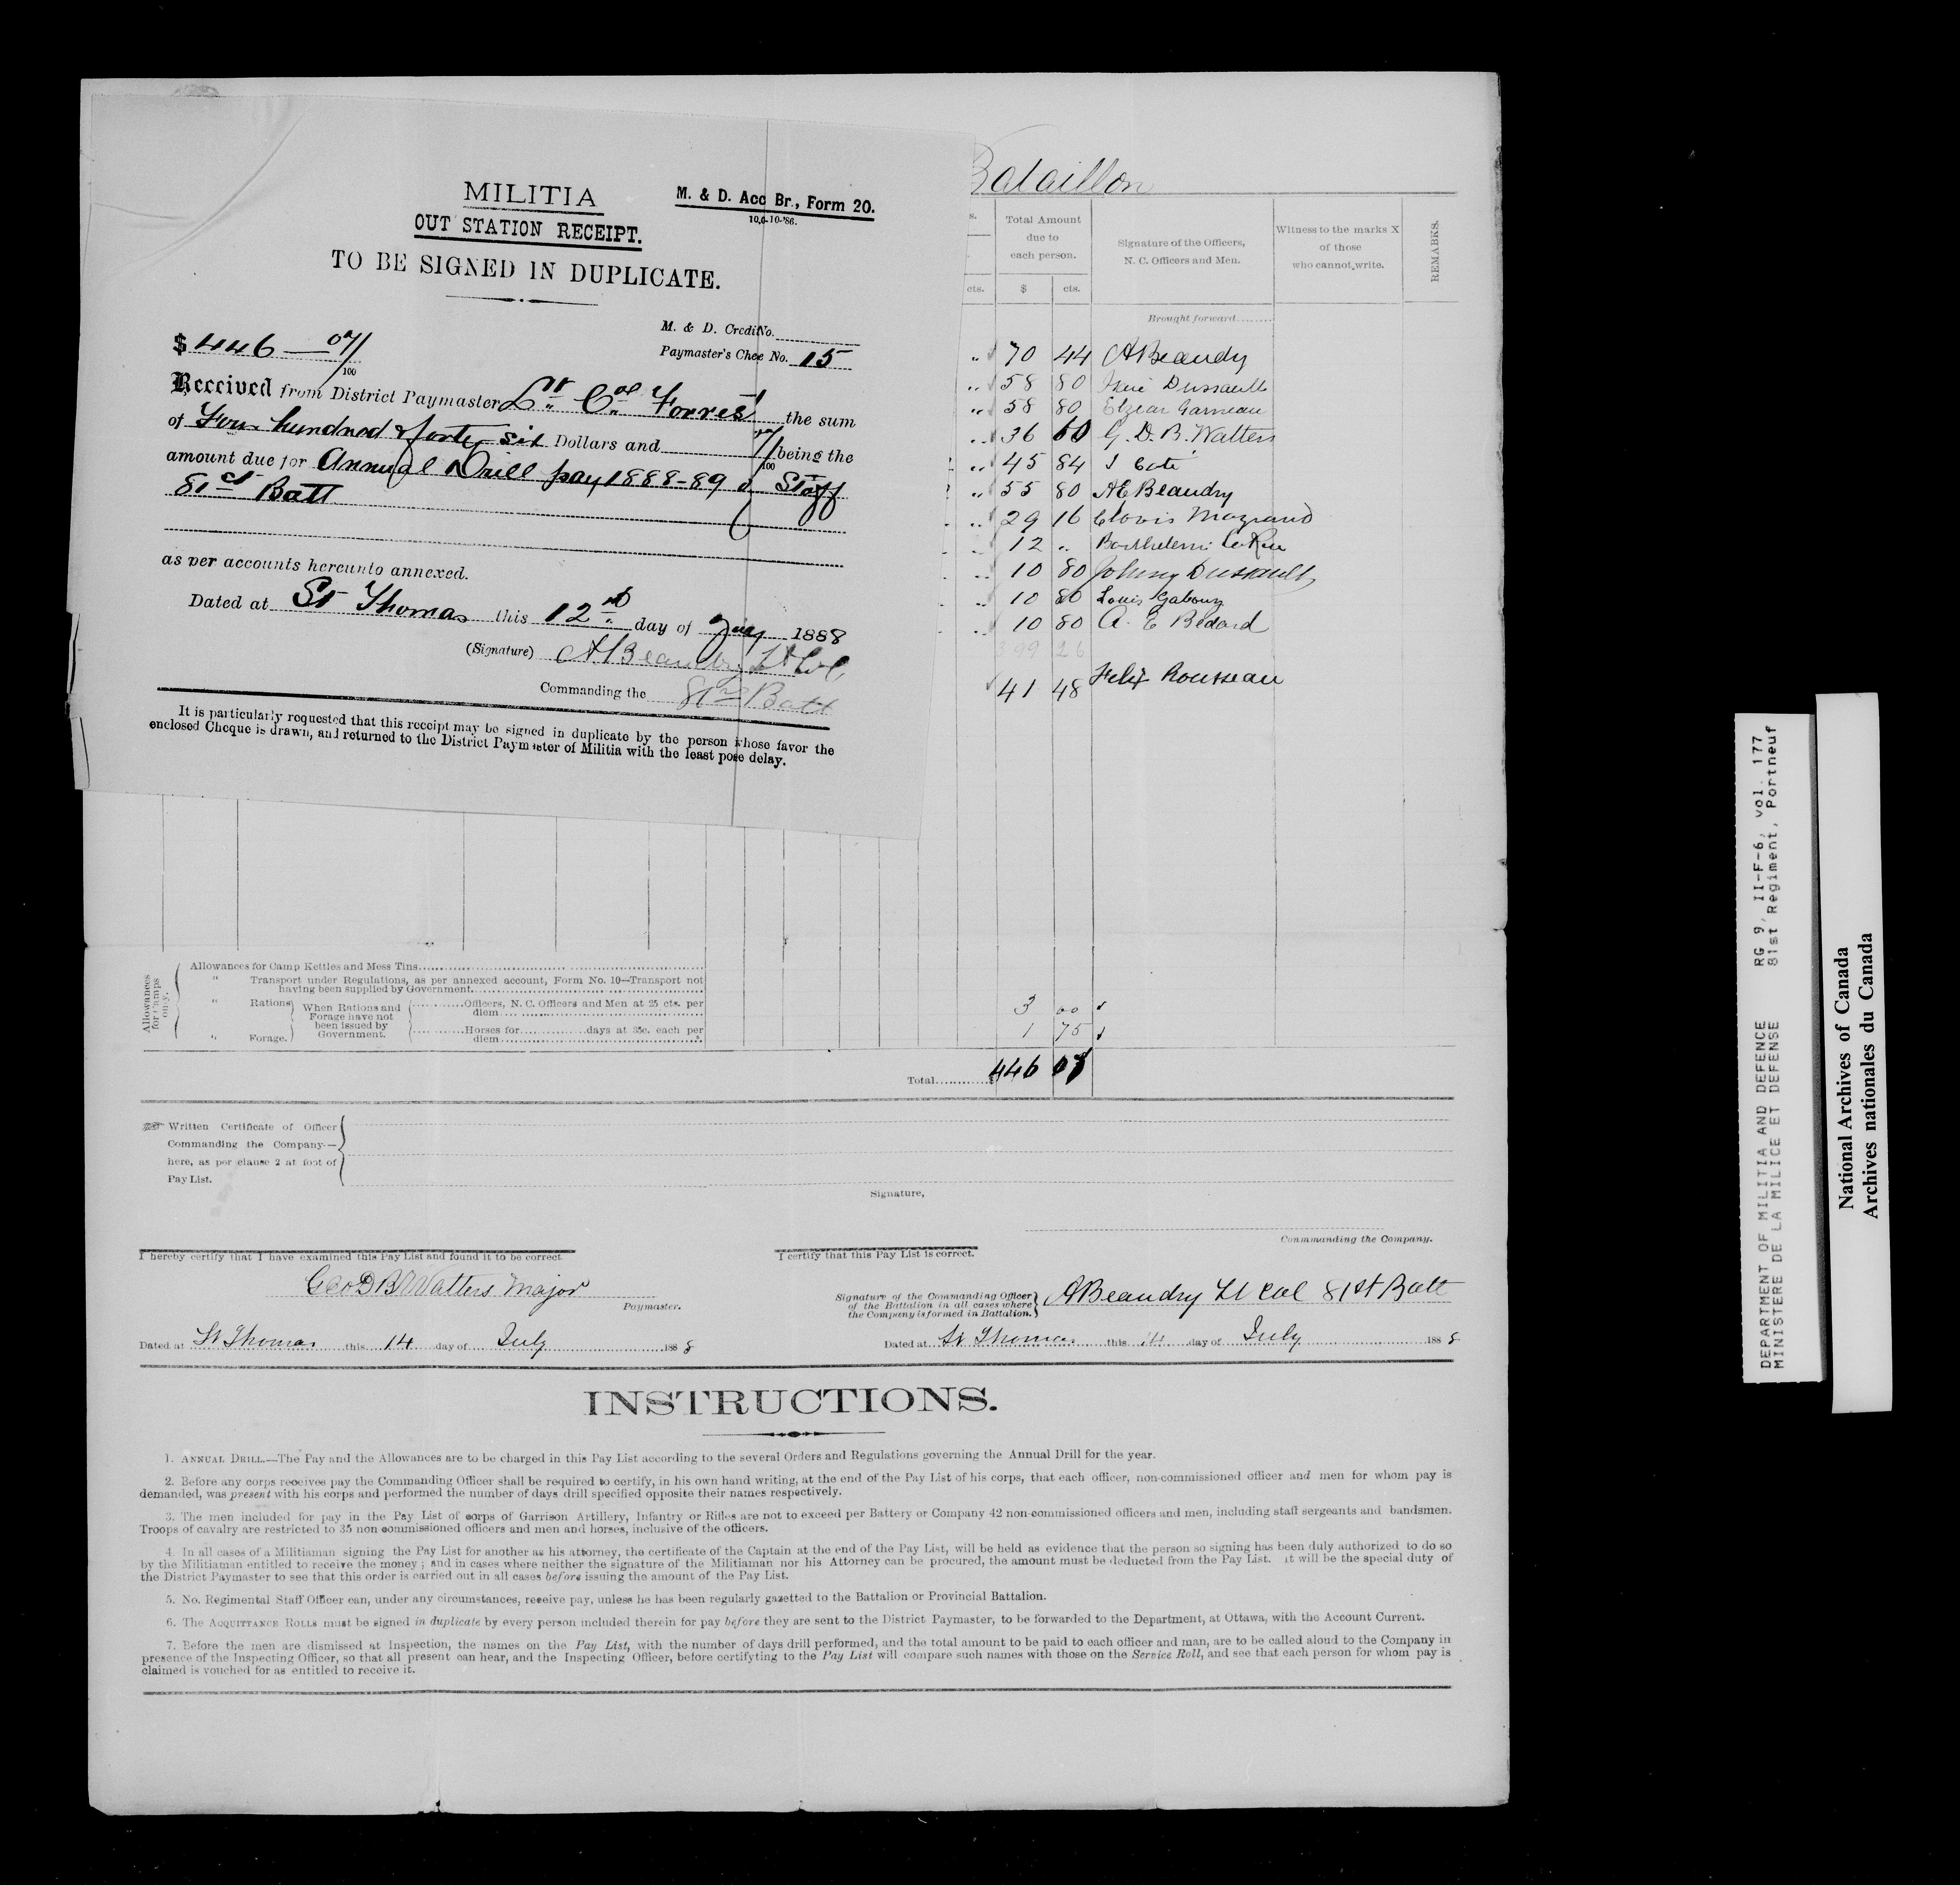 MILITIA
M. & D. Acc Br., Form 20.
OUT STATION RECEIPT.
10,0-10-'86.
TO BE SIGNED IN DUPLICATE.
M. & D. Credi No.
$ 446 — 07/100
Paymaster's Che e No. 15
Received from District Paymaster Lt. Col Forres the sum
of Four hundred & forty six Dollars and 07/100 being the
amount due for Annual Drill pay 1888-89 Staff
81st Batt
as per accounts hereunto annexed.
Dated at St Thomas this 12th day of July 1888
(Signature) A Beaudry Lt Col,
Commanding the 81st Batt
It is particularly requested that this receipt may be signed in duplicate by the person whose favor the
enclosed Cheque is drawn, and returned to the District Paymaster of Militia with the least po e delay.
Bataillon
s.
Total Amount due to each person.
Signature of the Officers, N. C. Officers and Men.
Witness to the marks X of those who cannot write.
REMARKS.
cts. $ cts.
Brought forward
70 44 A Beaudry
58 80 Dussault
58 80 Elzear Garneau
36 60 G. D. B. Watters
45 84 J Coté
55 80 AE Beaudry
29 16 Clovis Mayrand
12 „ Barthelemi
10 80 Johnny Dussault
10 80 Louis Gaboury
10 80 A. E Bédard
399 26
41 48 Felix Rousseau
Allowances for Camps only.
Allowances for Camp Kettles and Mess Tins
" Transport under Regulations, as per annexed account, Form No. 10—Transport not
having been supplied by Government
" Rations When Rations and Forage have not been issued by Government. Officers, N. C. Officers and Men at 25 cts. per diem 3 00
" Forage. Horses for days at 35c. each per diem 1 75
Total $ 446 07
Written Certificate of Officer
Commanding the Company—
here, as per clause 2 at foot of
Pay List.
Signature,
Commanding the Company.
I hereby certify that I have examined this Pay List and found it to be correct.
I certify that this Pay List is correct.
Geo D B Watters Major
Paymaster.
Signature of the Commanding Officer
of the Battalion in all cases where
the Company is formed in Battalion.
A Beaudry Lt Col 81st Batt
Dated at St Thomas this 14 day of July 1888
Dated at St Thomas this 14 day of July 1888
INSTRUCTIONS.
1. ANNUAL DRILL.—The Pay and the Allowances are to be charged in this Pay List according to the several Orders and Regulations governing the Annual Drill for the year.
2. Before any corps receives pay the Commanding Officer shall be required to certify, in his own hand writing, at the end of the Pay List of his corps, that each officer, non-commissioned officer and men for whom pay is
demanded, was present with his corps and performed the number of days drill specified opposite their names respectively.
3. The men included for pay in the Pay List of corps of Garrison Artillery, Infantry or Rifles are not to exceed per Battery or Company 42 non-commissioned officers and men, including staff sergeants and bandsmen.
Troops of cavalry are restricted to 35 non commissioned officers and men and horses, inclusive of the officers.
4. In all cases of a Militiaman signing the Pay List for another as his attorney, the certificate of the Captain at the end of the Pay List, will be held as evidence that the person so signing has been duly authorized to do so
by the Militiaman entitled to receive the money ; and in cases where neither the signature of the Militiaman nor his Attorney can be procured, the amount must be deducted from the Pay List. it will be the special duty of
the District Paymaster to see that this order is carried out in all cases before issuing the amount of the Pay List.
5. No. Regimental Staff Officer can, under any circumstances, receive pay, unless he has been regularly gazetted to the Battalion or Provincial Battalion.
6. The ACQUITTANCE ROLLS must be signed in duplicate by every person included therein for pay before they are sent to the District Paymaster, to be forwarded to the Department, at Ottawa, with the Account Current.
7. Before the men are dismissed at Inspection, the names on the Pay List, with the number of days drill performed, and the total amount to be paid to each officer and man, are to be called aloud to the Company in
presence of the Inspecting Officer, so that all present can hear, and the Inspecting Officer, before certifying to the Pay List will compare such names with those on the Service Roll, and see that each person for whom pay is
claimed is vouched for as entitled to receive it.
DEPARTMENT OF MILITIA AND DEFENCE RG 9, II-F-6, vol. 177
MINISTERE DE LA MILICE ET DEFENSE 81st Regiment, Portneuf
National Archives of Canada
Archives nationales du Canada